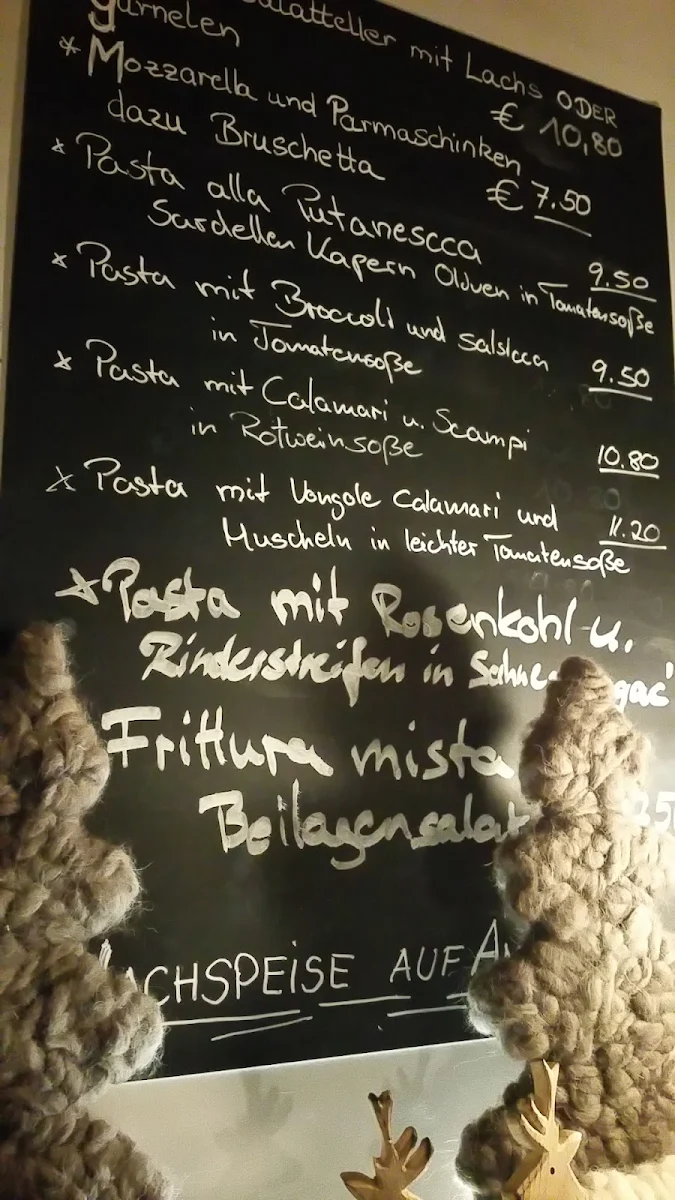 mit Lachs ODER
garnelen € 10,80
* Mozzarella und Parmaschinken
dazu Bruschetta € 7.50
* Pasta alla Putanescca 9.50
Sardellen Kapern Oliven in Tomatensoße
* Pasta mit Broccoli und Salsicca
in Tomatensoße 9.50
* Pasta mit Calamari u. Scampi
in Rotweinsoße 10.80
* Pasta mit Vongole Calamari und 11.20
Muscheln in leichter Tomatensoße
* Pasta mit Rosenkohl u.
Rinderstreifen in
Frittura mista
Beilagensalat
AUF